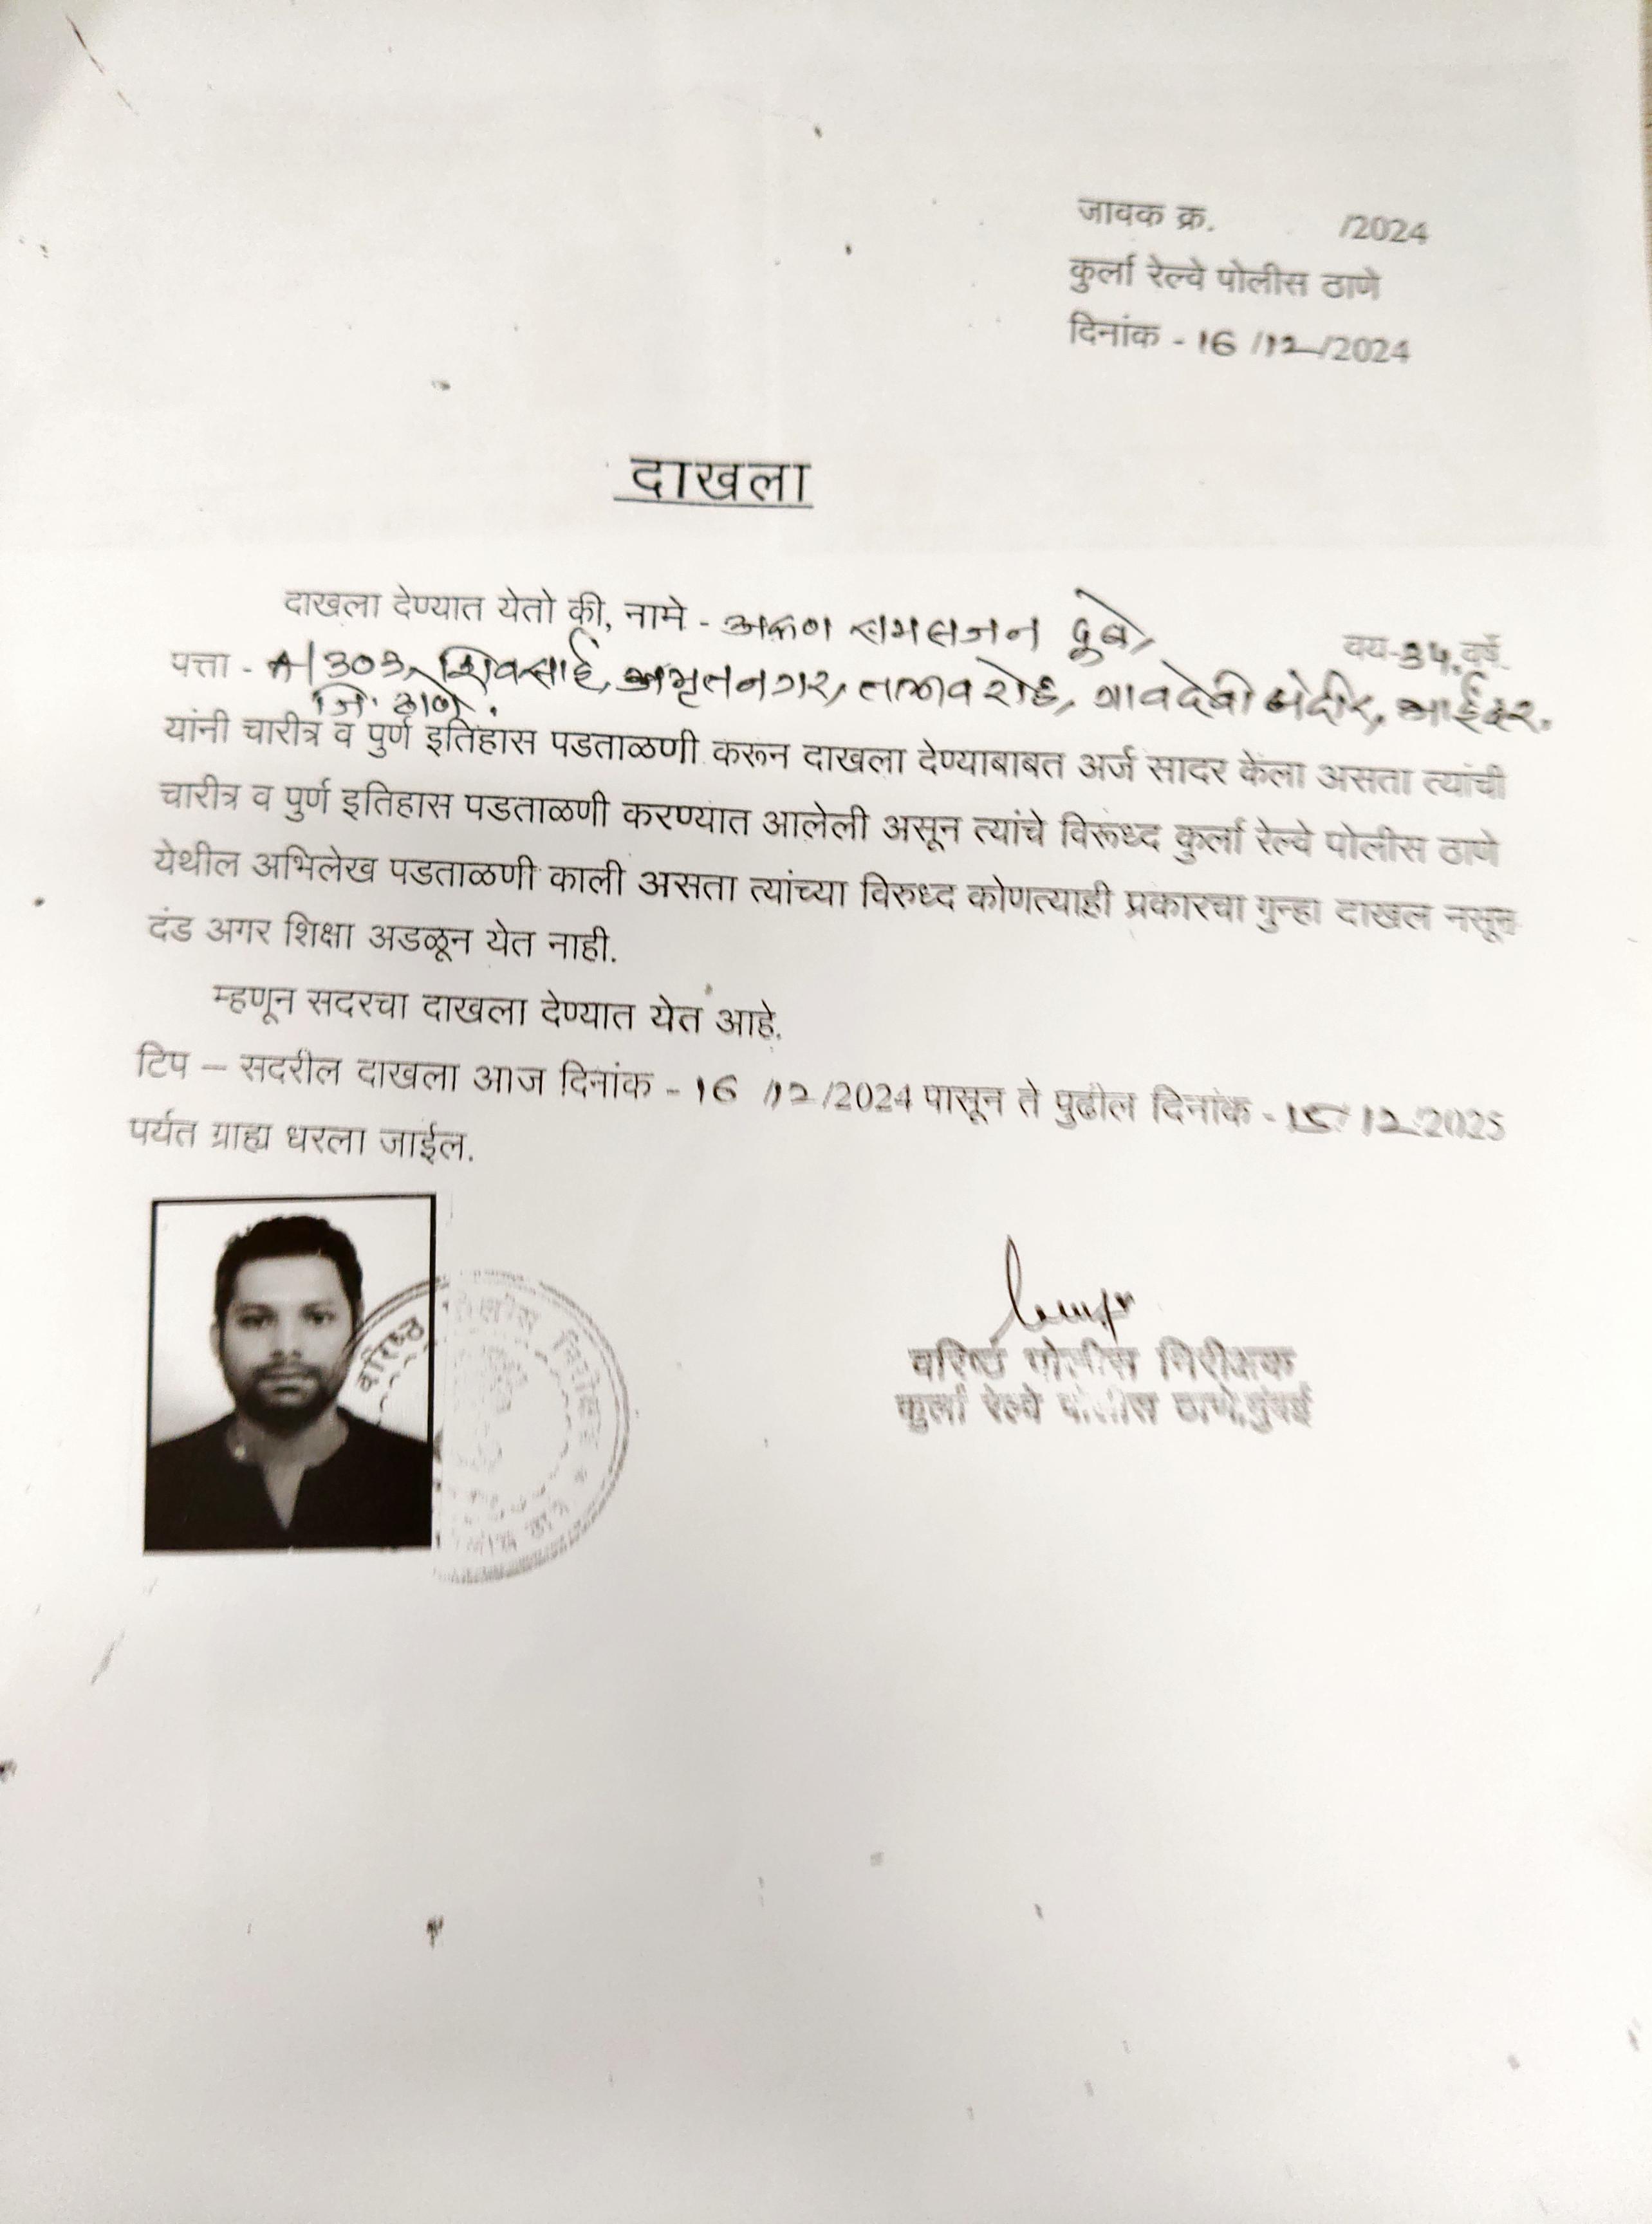 जावक क्र. /2024
कुर्ला रेल्वे पोलीस ठाणे
दिनांक - 16 /12/2024
दाखला
दाखला देण्यात येतो की, नामे - अरुण रामसजन दुबे, वय-34.वर्षे
पत्ता - A/303, शिवसाई, अमृतनगर, तलाव रोड, गावदेवी मंदीर, भाईंदर.
जि. ठाणे.
यांनी चारीत्र व पुर्ण इतिहास पडताळणी करून दाखला देण्याबाबत अर्ज सादर केला असता त्यांची
चारीत्र व पुर्ण इतिहास पडताळणी करण्यात आलेली असून त्यांचे विरूध्द कुर्ला रेल्वे पोलीस ठाणे
येथील अभिलेख पडताळणी काली असता त्यांच्या विरुध्द कोणत्याही प्रकारचा गुन्हा दाखल नसून
दंड अगर शिक्षा अडळून येत नाही.
म्हणून सदरचा दाखला देण्यात येत आहे.
टिप – सदरील दाखला आज दिनांक - 16 /12/2024 पासून ते पुढील दिनांक - 15/12/2025
पर्यत ग्राह्य धरला जाईल.
वरिष्ठ पोलीस निरीक्षक
वरिष्ठ पोलीस निरीक्षक
कुर्ला रेल्वे पोलीस ठाणे,मुंबई